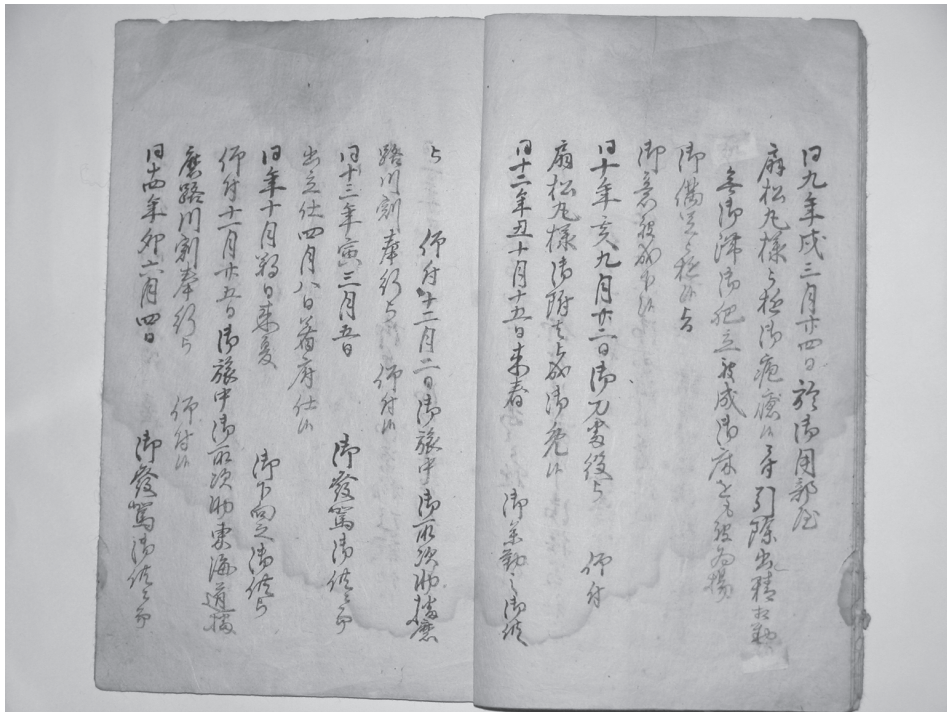 同九年戌三月廿四日於御用部屋
扇松丸様々極御疱瘡ニ付引除出精相勤
無御滞御肥立被成御床をも被為揚
御満足之極ニ候与
御意被成下候
同十年亥九月廿二日御刀番役与 仰付
扇松丸様御附者被成御免候
同十二年丑十月十五日来春 御参勤之御供
与 仰付十二月二日御旅中御取次助播磨
路川割奉行与 仰付候
同十三年寅三月五日 御發駕御供ニ而
出立仕四月八日着府仕候
同年十月朔日来夏 御下向之御供与
仰付十一月廿五日御旅中御取次助東海道播
磨路川割奉行与 仰付候
同十四年卯六月四日 御發駕御供ニ而